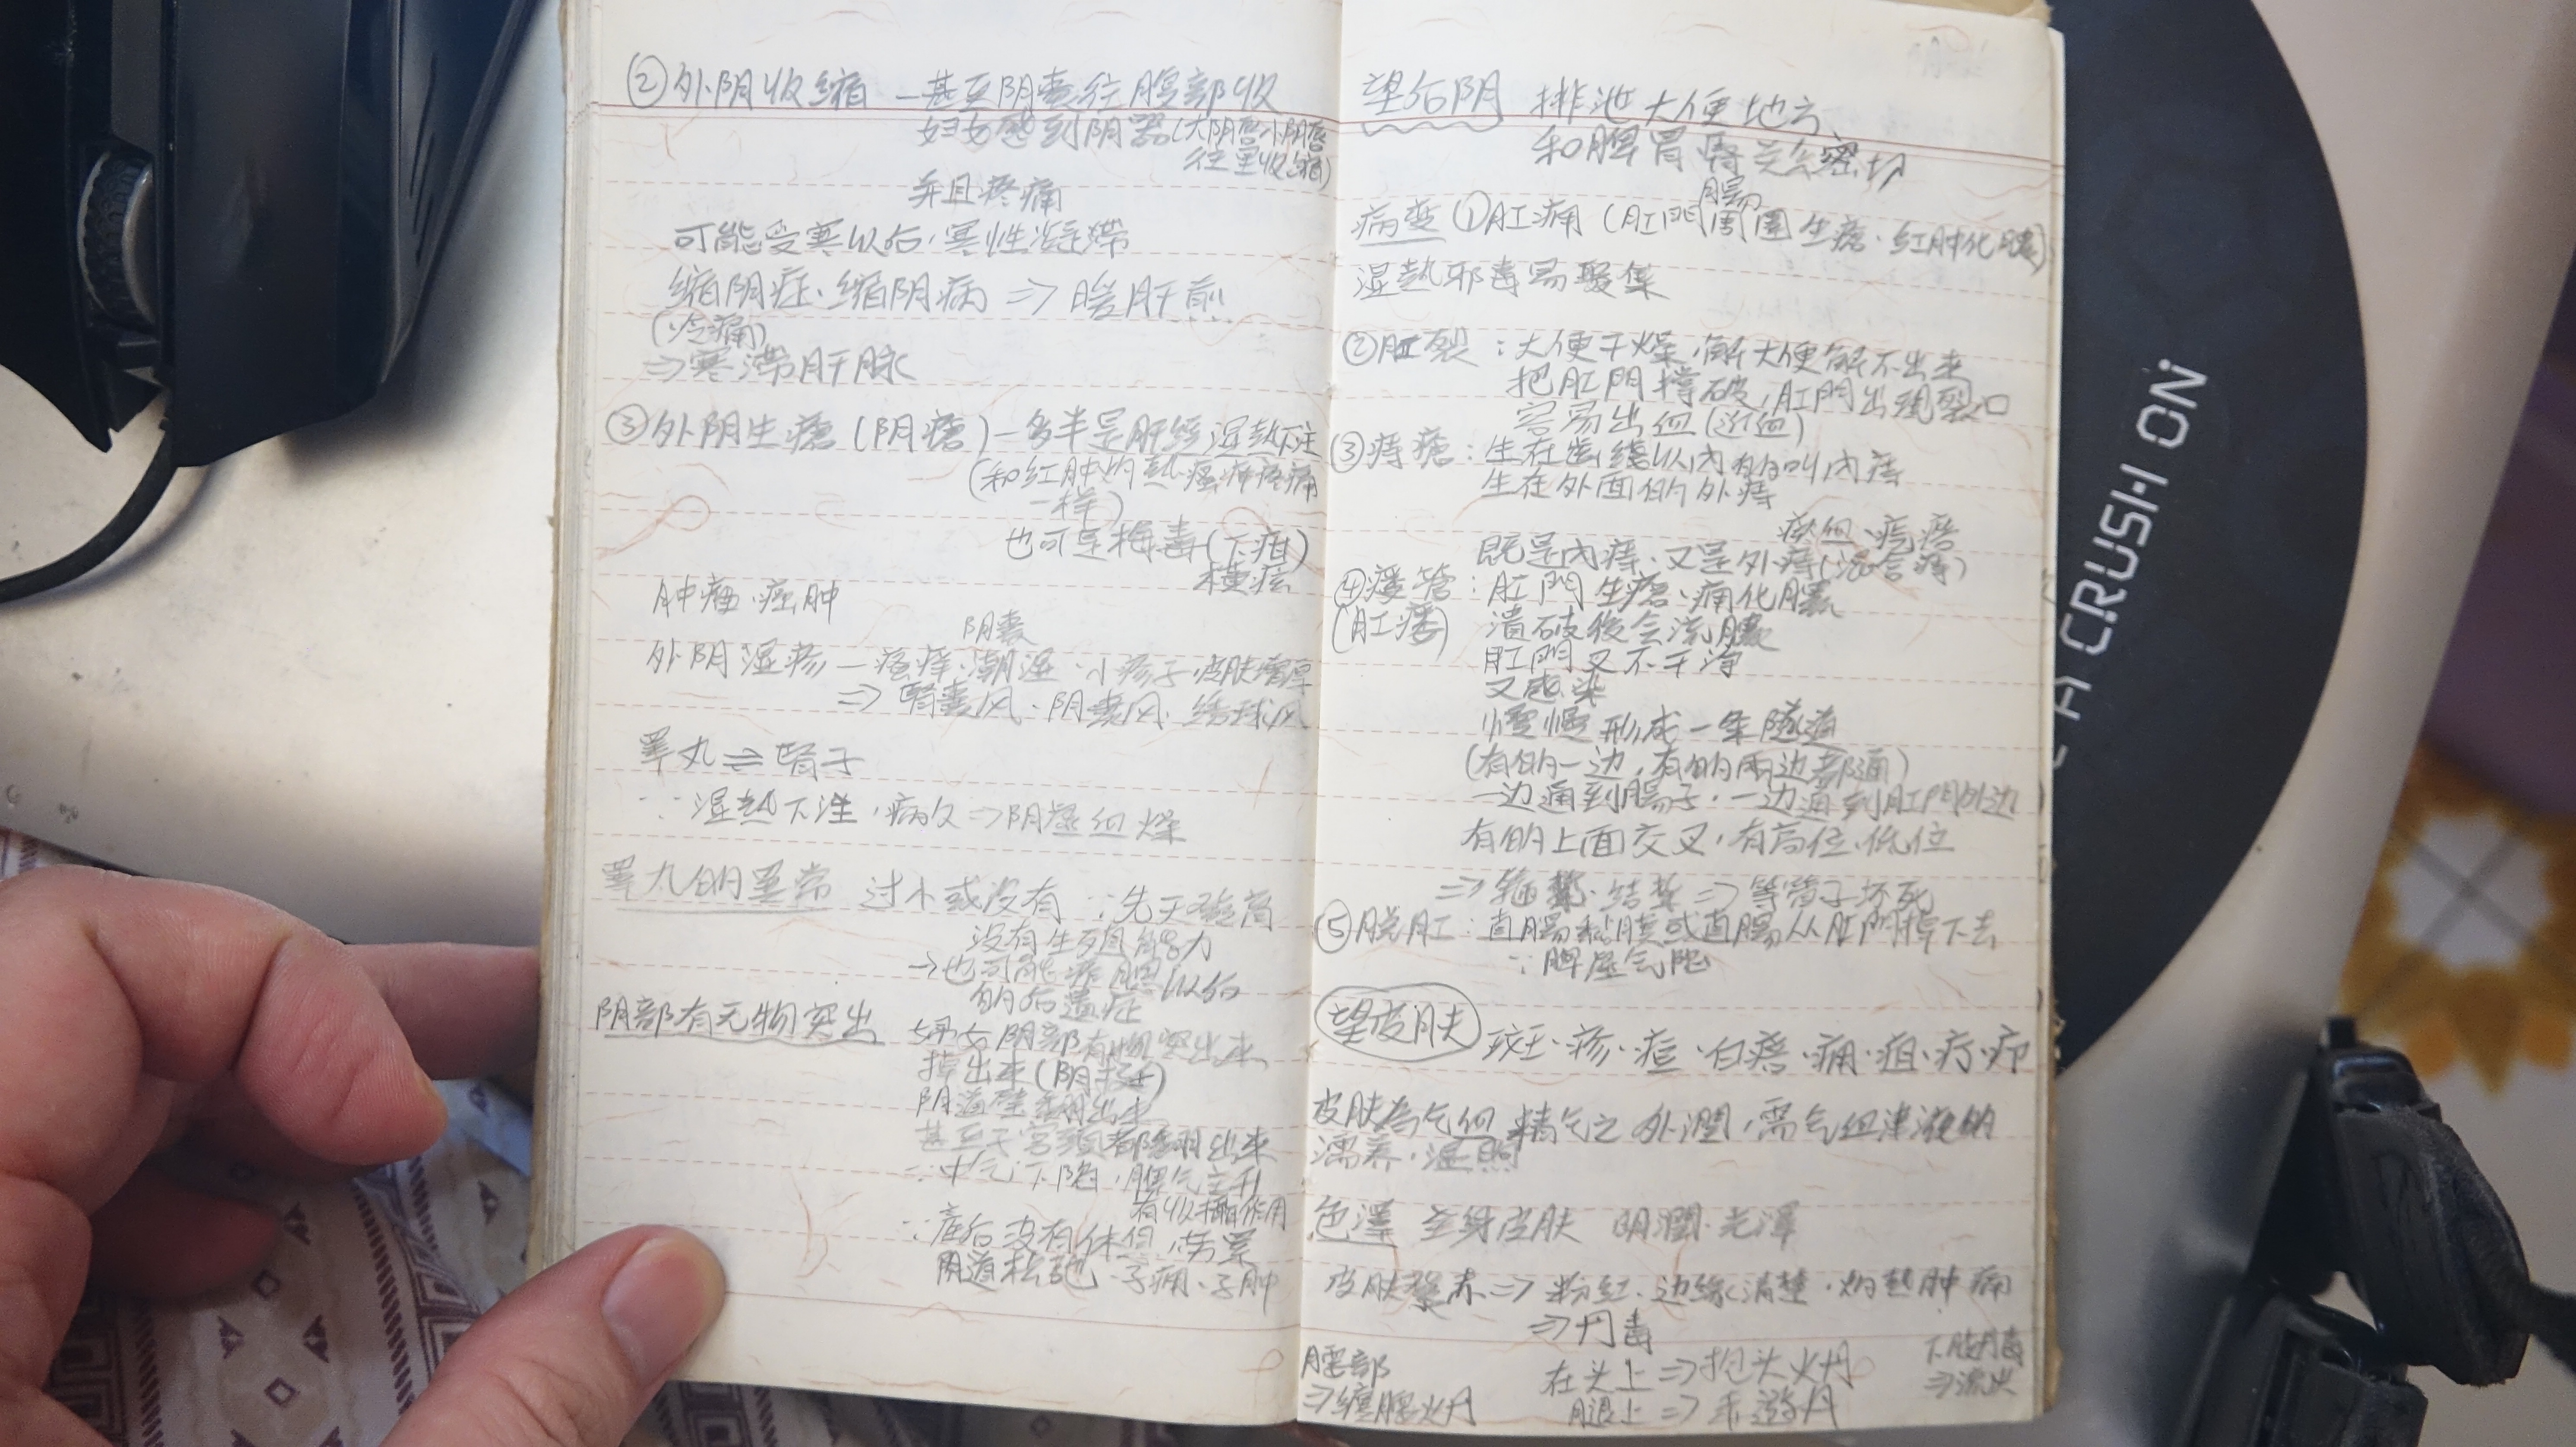 ②外阴收缩 — 甚至阴囊往腹部收
妇女感到阴器(大阴唇小阴唇
往里收缩)
并且疼痛
可能受寒以后,寒性凝滞
缩阴症、缩阴病 ⇒
(冷痛)
⇒寒滞肝脉
③外阴生瘡(阴瘡)—多半是肝经湿热下注
(和红肿灼热瘙痒疼痛
一样)
也可是梅毒(下疳)
横痃
肿瘤·癌肿
阴囊
外阴湿疹—瘙痒·潮湿·小疹子·皮肤增厚
⇒腎囊风·阴囊风·绣球风
睾丸⇌腎子
∵湿热下注,病久⇒阴虚血燥
睾丸的異常 过小或没有 ∵先天
没有生殖能力
→也可能 以后
的后遗症
阴部有无物突出 妇女阴部有物突出来
挺出来(阴挺)
阴道壁翻出来
甚至子宫頸都翻出来
∵中气下陷,脾气主升
有收攝作用
∵产后没有休息,劳累
阴道松弛·子痛·子肿
望后阴 排泄大便地方
和脾胃腎关係密切
腸
病变 ①肛痈(肛門周圍生瘡·红肿化膿)
湿熱邪毒易聚集
②肛裂:大便干燥,解大便解不出来
把肛門撑破,肛門出現裂口
容易出血(近血)
③痔瘡:生在齿綫以内的叫内痔
生在外面的外痔
既是内痔·又是外痔(混合痔)
④瘻管:肛門生瘡、痈化膿
(肛瘻) 潰破後会流膿
肛門又不干净
又感染
慢慢形成一条隧道
(有的一边,有的兩边都通)
一边通到腸子,一边通到肛門外边
有的上面交叉,有高位·低位
⇒ 结紮⇒等管子坏死
⑤脱肛:直腸粘膜或直腸从肛門掉下去
∵脾虚气陷
望皮肤 斑·疹·痘·白㾦·痈·疽·疔·疖
皮肤为气血 精气之外潤,需气血津液的
濡养·温煦
色澤 全身皮肤 明潤·光澤
皮肤發赤⇒粉红·边缘清楚·灼热肿痛
⇒丹毒
腰部 在头上⇒抱头火丹 下肢丹毒
⇒缠腰火丹 腿上⇒赤游丹 ⇒流火
CRUSH ON